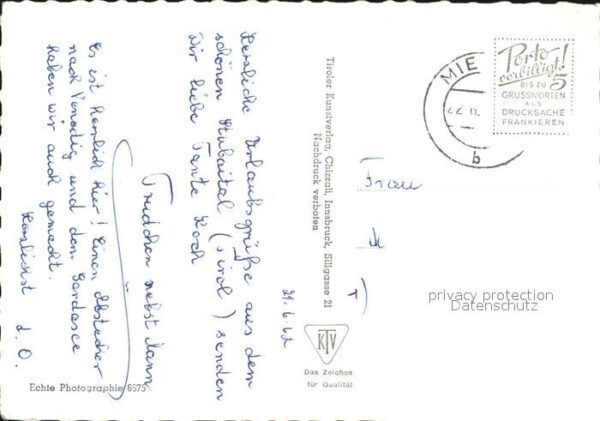 Herzliche Urlaubsgrüße aus dem
schönen Stubaital (Tirol) senden
Wir liebe Tante Koch
Trudchen nebst Mann
Es ist herrlich hier! Einen Abstecher
nach Venedig und dem Gardasee
haben wir auch gemacht.
Herzlichst d. O.
Echte Photographie 6575
Tiroler Kunstverlag, Chizzali, Innsbruck, Sillgasse 21
Nachdruck verboten
21.6.62
KTV
Das Zeichen
für Qualität
MIE
b
Porto
verbilligt!
BIS ZU 5
GRUSSWORTEN
ALS
DRUCKSACHE
FRANKIEREN
Frau
privacy protection
Datenschutz